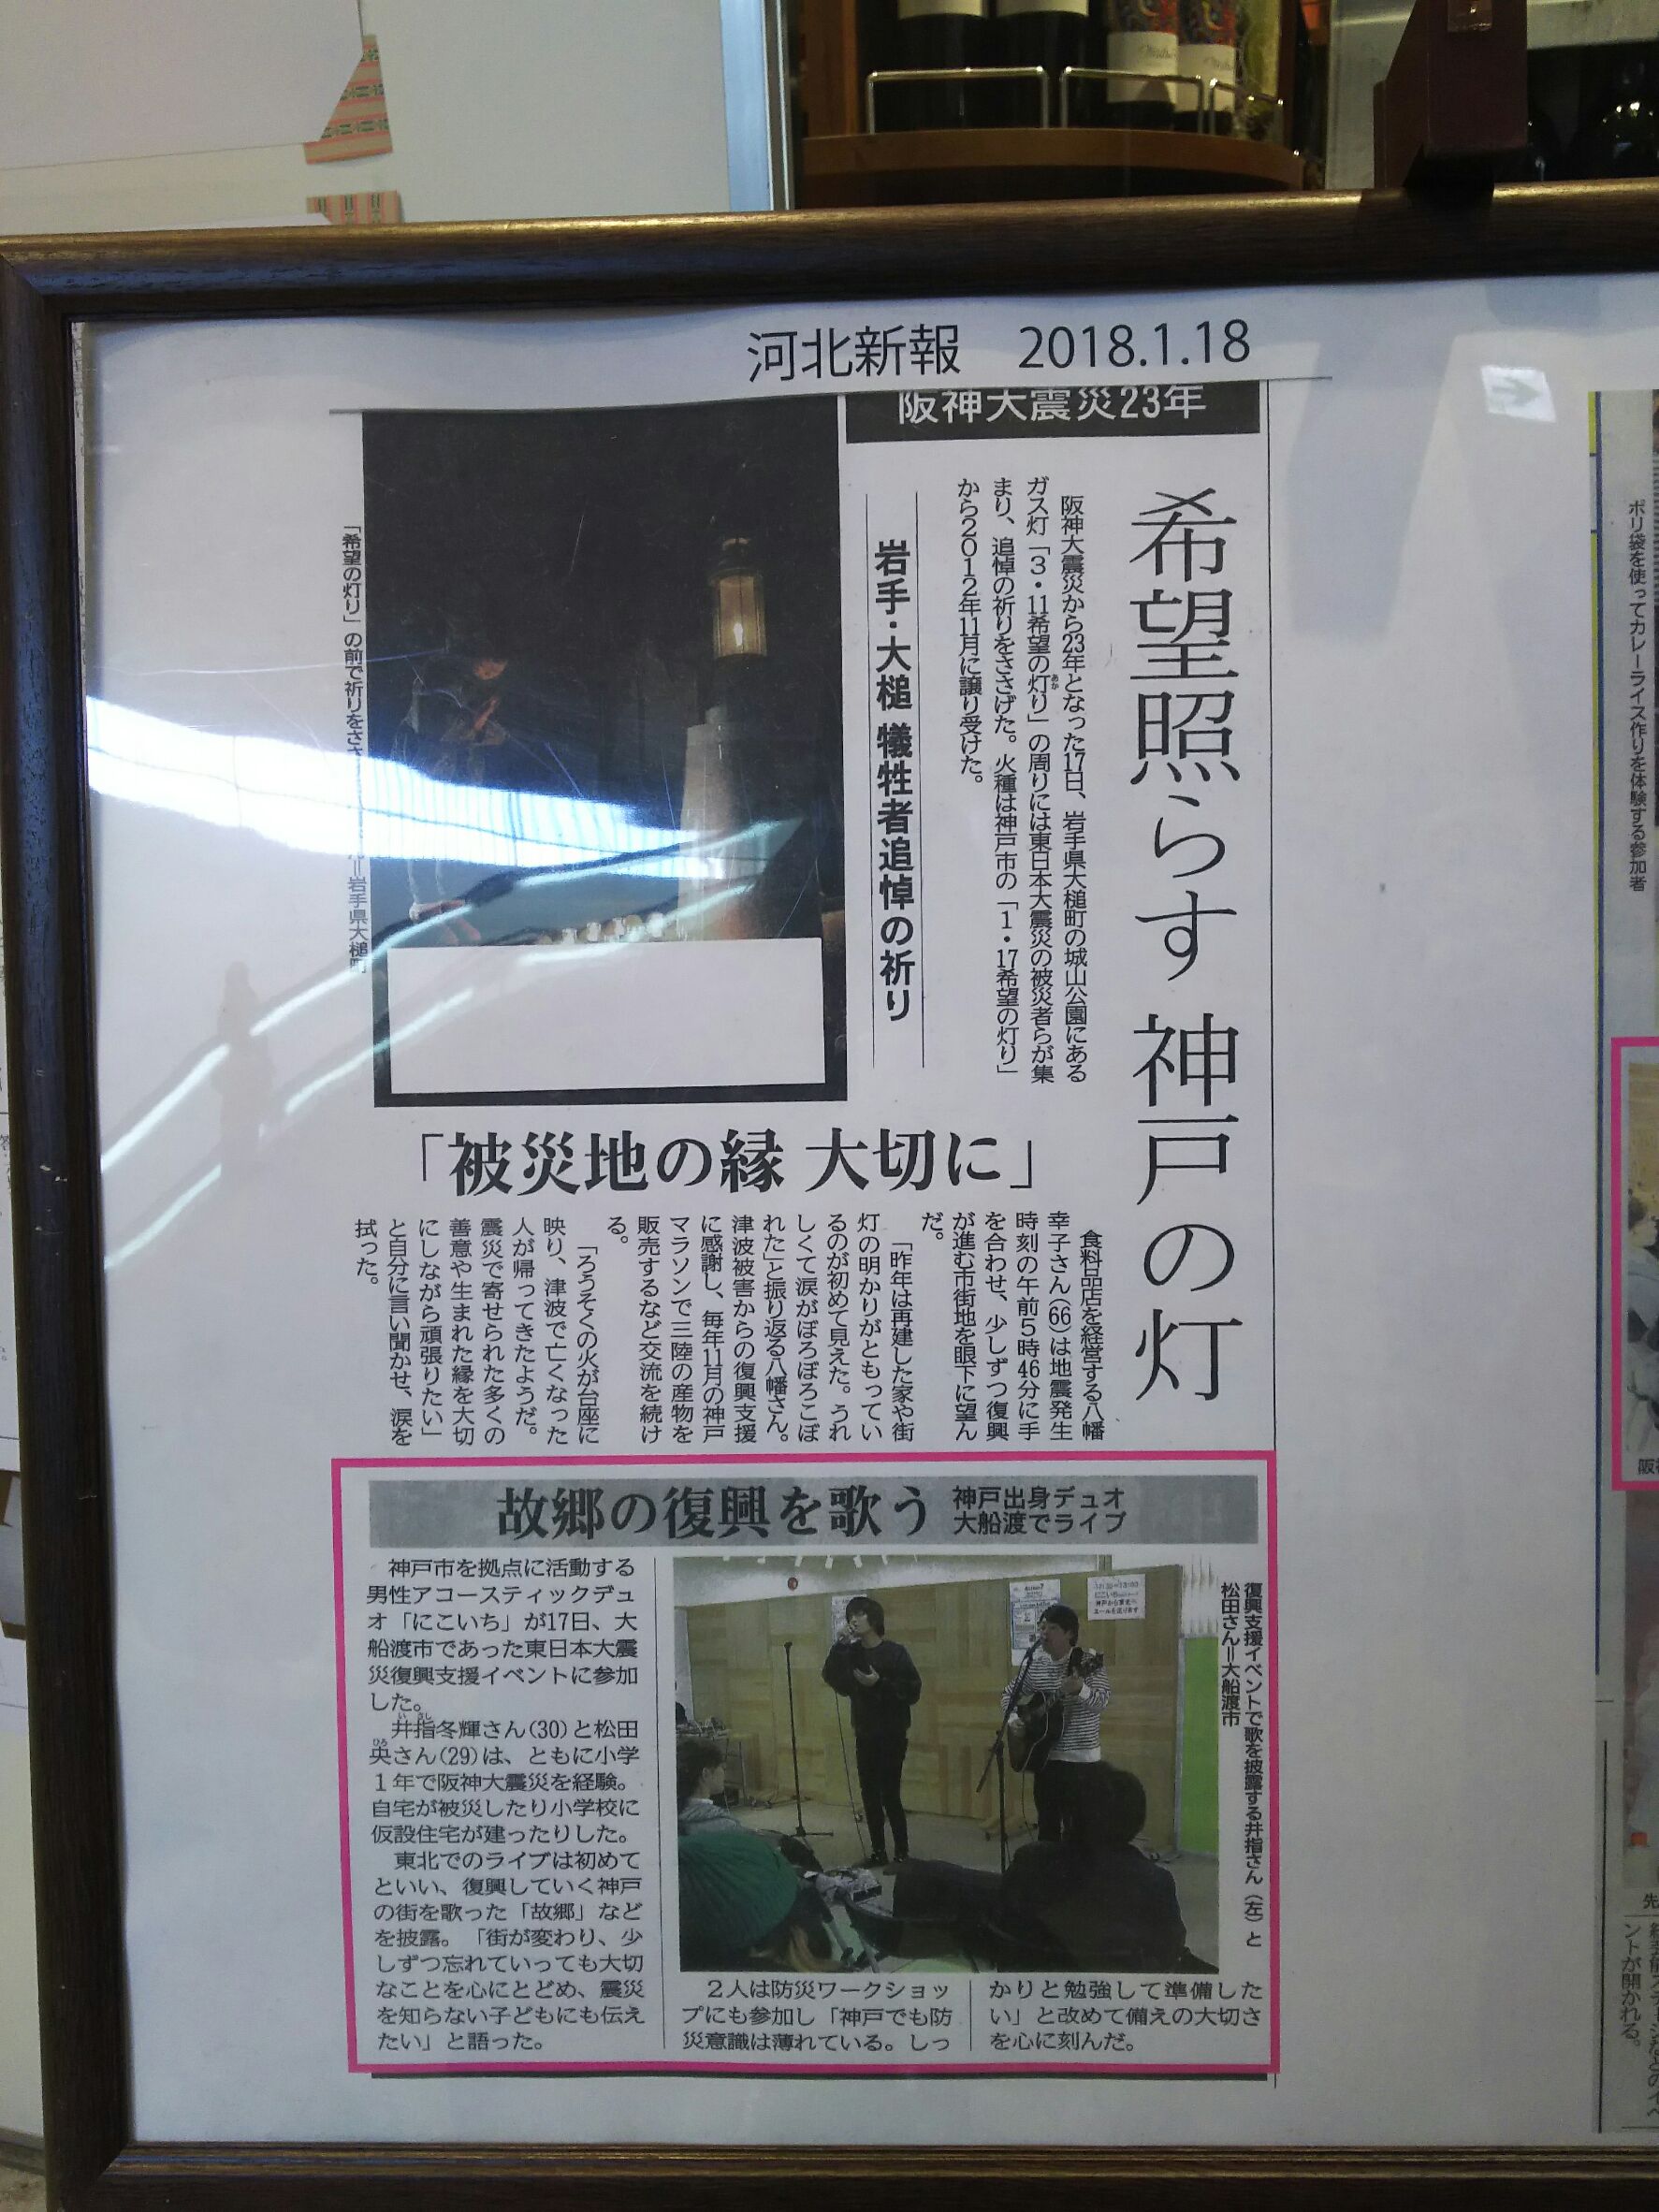 河北新報　2018.1.18
阪神大震災23年
希望照らす 神戸の灯
阪神大震災から23年となった17日、岩手県大槌町の城山公園にある
ガス灯「3・11希望の灯り」の周りには東日本大震災の被災者らが集
まり、追悼の祈りをささげた。火種は神戸市の「1・17希望の灯り」
から2012年11月に譲り受けた。
岩手・大槌 犠牲者追悼の祈り
「希望の灯り」の前で祈りをささ
＝岩手県大槌町
「被災地の縁 大切に」
食料品店を経営する八幡
幸子さん(66)は地震発生
時刻の午前5時46分に手
を合わせ、少しずつ復興
が進む市街地を眼下に望ん
だ。
「昨年は再建した家や街
灯の明かりがともってい
るのが初めて見えた。うれ
しくて涙がぼろぼろこぼ
れた」と振り返る八幡さん。
津波被害からの復興支援
に感謝し、毎年11月の神戸
マラソンで三陸の産物を
販売するなど交流を続け
る。
「ろうそくの火が台座に
映り、津波で亡くなった
人が帰ってきたようだ。
震災で寄せられた多くの
善意や生まれた縁を大切
にしながら頑張りたい」
と自分に言い聞かせ、涙を
拭った。
故郷の復興を歌う
神戸出身デュオ
大船渡でライブ
神戸市を拠点に活動する
男性アコースティックデュ
オ「にこいち」が17日、大
船渡市であった東日本大震
災復興支援イベントに参加
した。
井指冬輝さん(30)と松田
央さん(29)は、ともに小学
1年で阪神大震災を経験。
自宅が被災したり小学校に
仮設住宅が建ったりした。
東北でのライブは初めて
といい、復興していく神戸
の街を歌った「故郷」など
を披露。「街が変わり、少
しずつ忘れていっても大切
なことを心にとどめ、震災
を知らない子どもにも伝え
たい」と語った。
復興支援イベントで歌を披露する井指さん(左)と
松田さん＝大船渡市
2人は防災ワークショッ
プにも参加し「神戸でも防
災意識は薄れている。しっ
かりと勉強して準備した
い」と改めて備えの大切さ
を心に刻んだ。
ポリ袋を使ってカレーライス作りを体験する参加者
ントが開かれる。